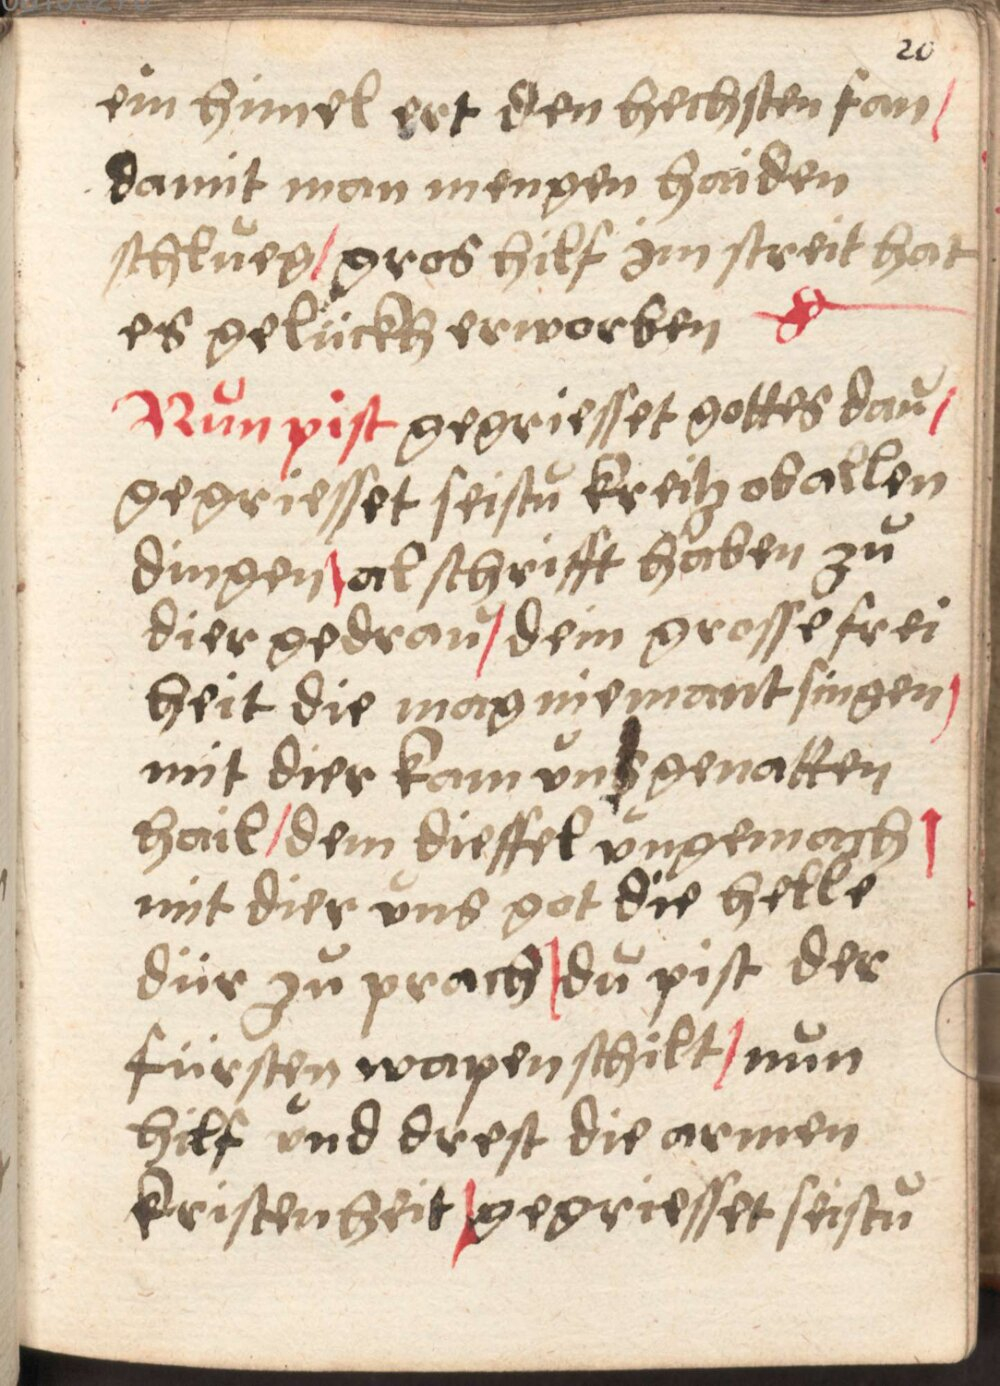 20
ein himel ert den hechsten fan /
damit man mengen haiden
schlueg / gros hilf im streit hat
es gelückh erworben
Nun pist gegriesset gottes dau /
gegriesset seistu kreitz ob allen
dingen / al schrifft haben zu
dier gedrau / dein grosse frei
heit die mag niemant singen /
mit dier kam uns genatten
hail / dem dieffel ungemach /
mit dier uns got die helle
dür zu prach / du pist der
fürsten wapen schilt / nun
hilf und drest die armen
kristenheit / gegriesset seistu